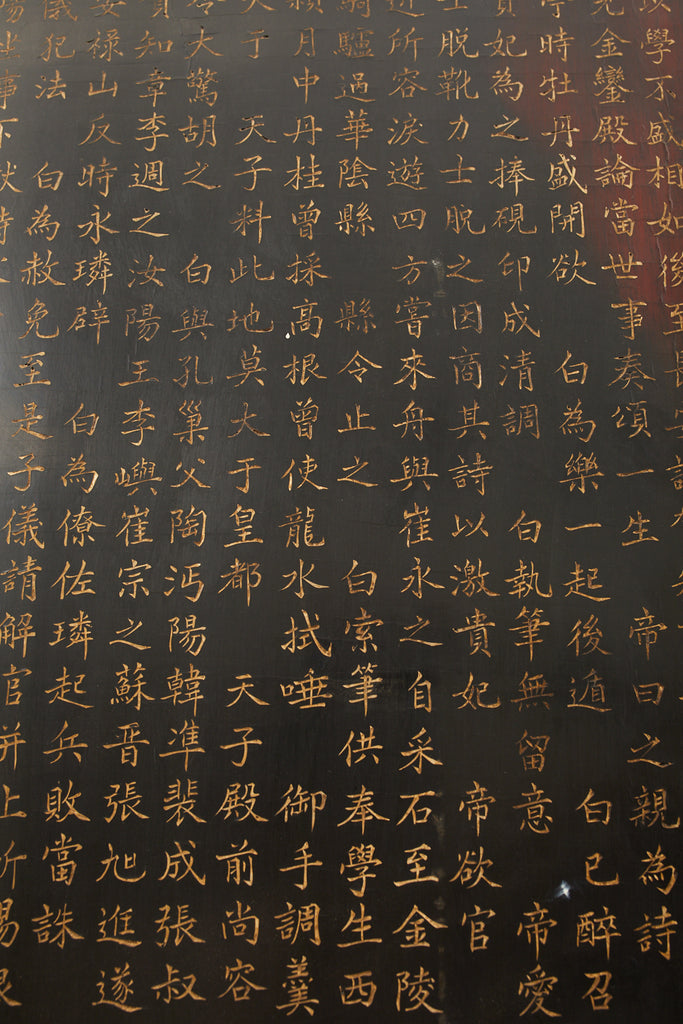 以學不盛相如後至長
見金鑾殿論當世事奏頌一生 帝曰之親為詩
亭時牡丹盛開欲 白為樂一起後遁 白已醉召
貴妃為之捧硯印成清調 白執筆無留意 帝愛
士脫靴力士脫之因商其詩以激貴妃 帝欲官
近所容淚遊四方嘗來舟與崔永之自采石至金陵
騎驢過華陰縣 縣令止之 白索筆供奉學生西
月中丹桂曾採高根曾使龍水拭唾 御手調羹
于 天子料此地莫大于皇都 天子殿前尚容
大驚胡之 白與孔巢父陶沔陽韓準裴成張叔
知章李週之汝陽王李嶼崔宗之蘇晉張旭逛遂
安祿山反時永璘辟 白為僚佐璘起兵敗當誅
儀犯法 白為赦免至是子儀請解官并上所賜
事下獄時